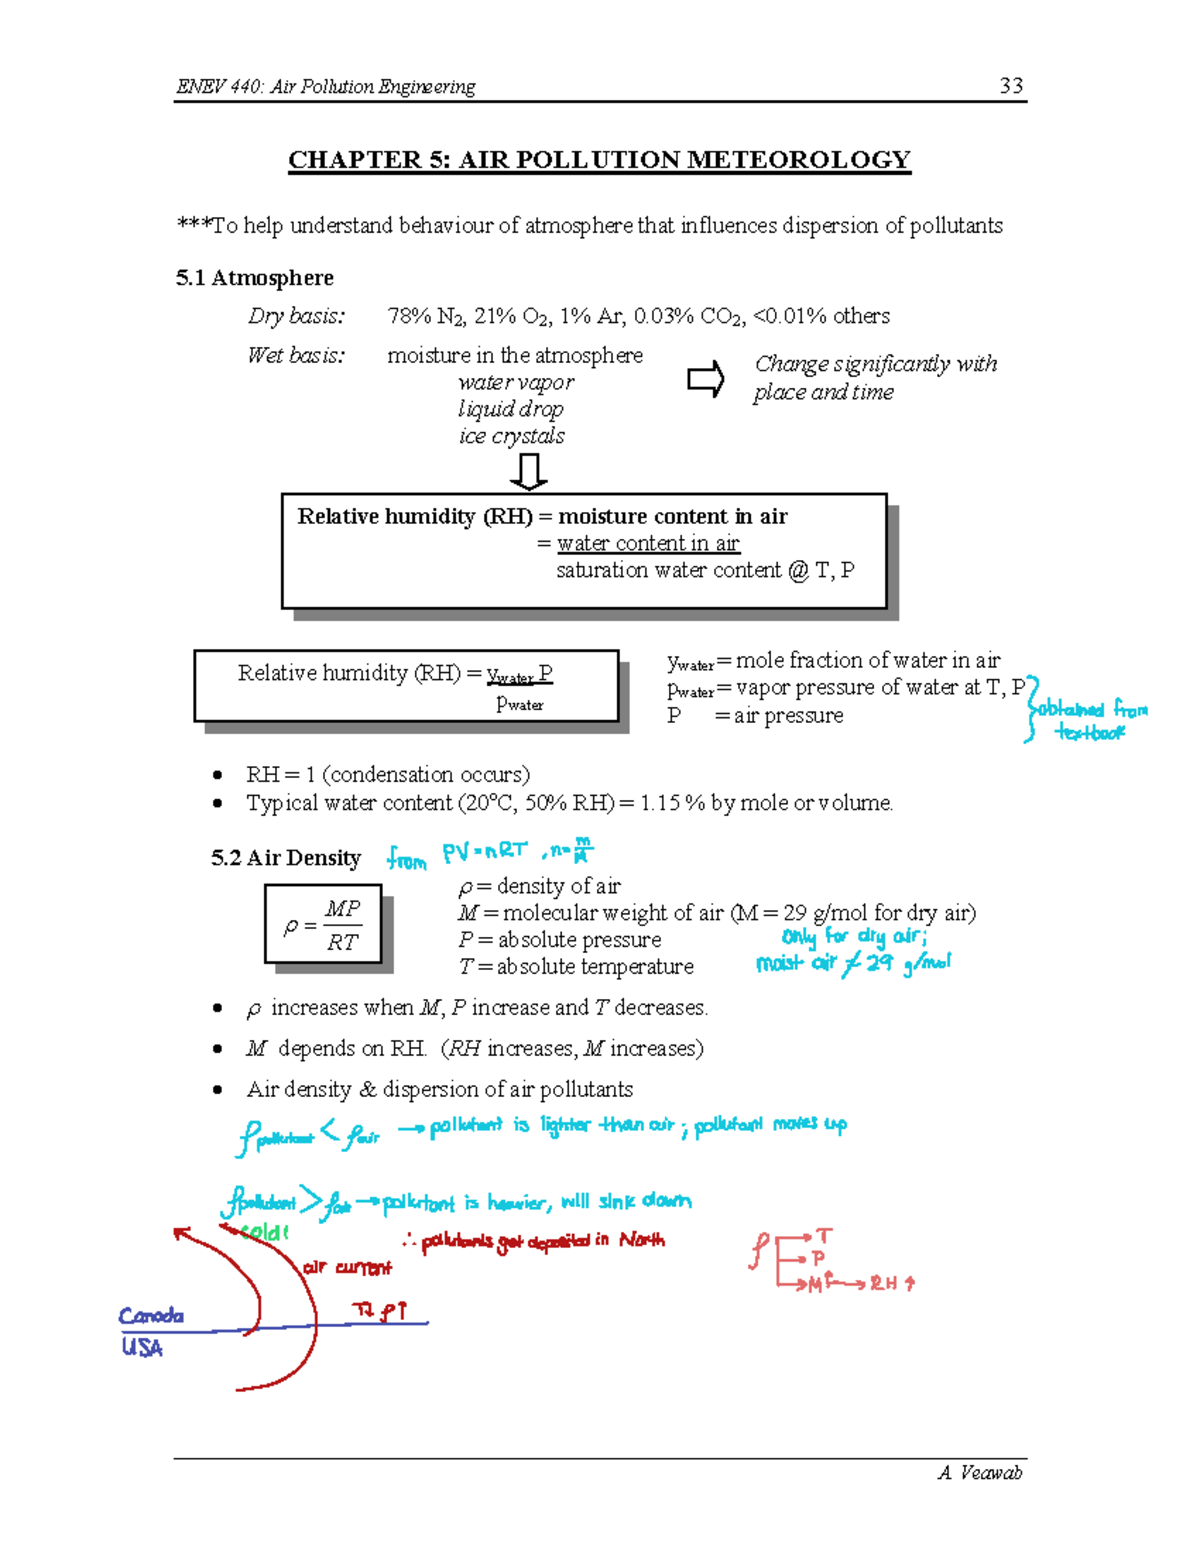 ENEV 440: Air Pollution Engineering 33
CHAPTER 5: AIR POLLUTION METEOROLOGY
***To help understand behaviour of atmosphere that influences dispersion of pollutants
5.1 Atmosphere
Dry basis: 78% N2, 21% O2, 1% Ar, 0.03% CO2, <0.01% others
Wet basis: moisture in the atmosphere
water vapor
liquid drop
ice crystals
Change significantly with
place and time
Relative humidity (RH) = moisture content in air
= water content in air
saturation water content @ T, P
Relative humidity (RH) = ywater P
pwater
ywater = mole fraction of water in air
pwater = vapor pressure of water at T, P
P = air pressure
obtained from
textbook
• RH = 1 (condensation occurs)
• Typical water content (20°C, 50% RH) = 1.15 % by mole or volume.
5.2 Air Density from PV=nRT, n=m/M
ρ = MP/RT
ρ = density of air
M = molecular weight of air (M = 29 g/mol for dry air)
P = absolute pressure
T = absolute temperature
only for dry air;
moist air ≠ 29 g/mol
• ρ increases when M, P increase and T decreases.
• M depends on RH. (RH increases, M increases)
• Air density & dispersion of air pollutants
ρpollutant < ρair → pollutant is lighter than air; pollutant moves up
ρpollutant > ρair → pollutant is heavier, will sink down
cold!
∴ pollutants get deposited in North
air current
T↓ ρ↑
Canada
USA
ρ → T
→ P
→ M↑ → RH↑
A. Veawab